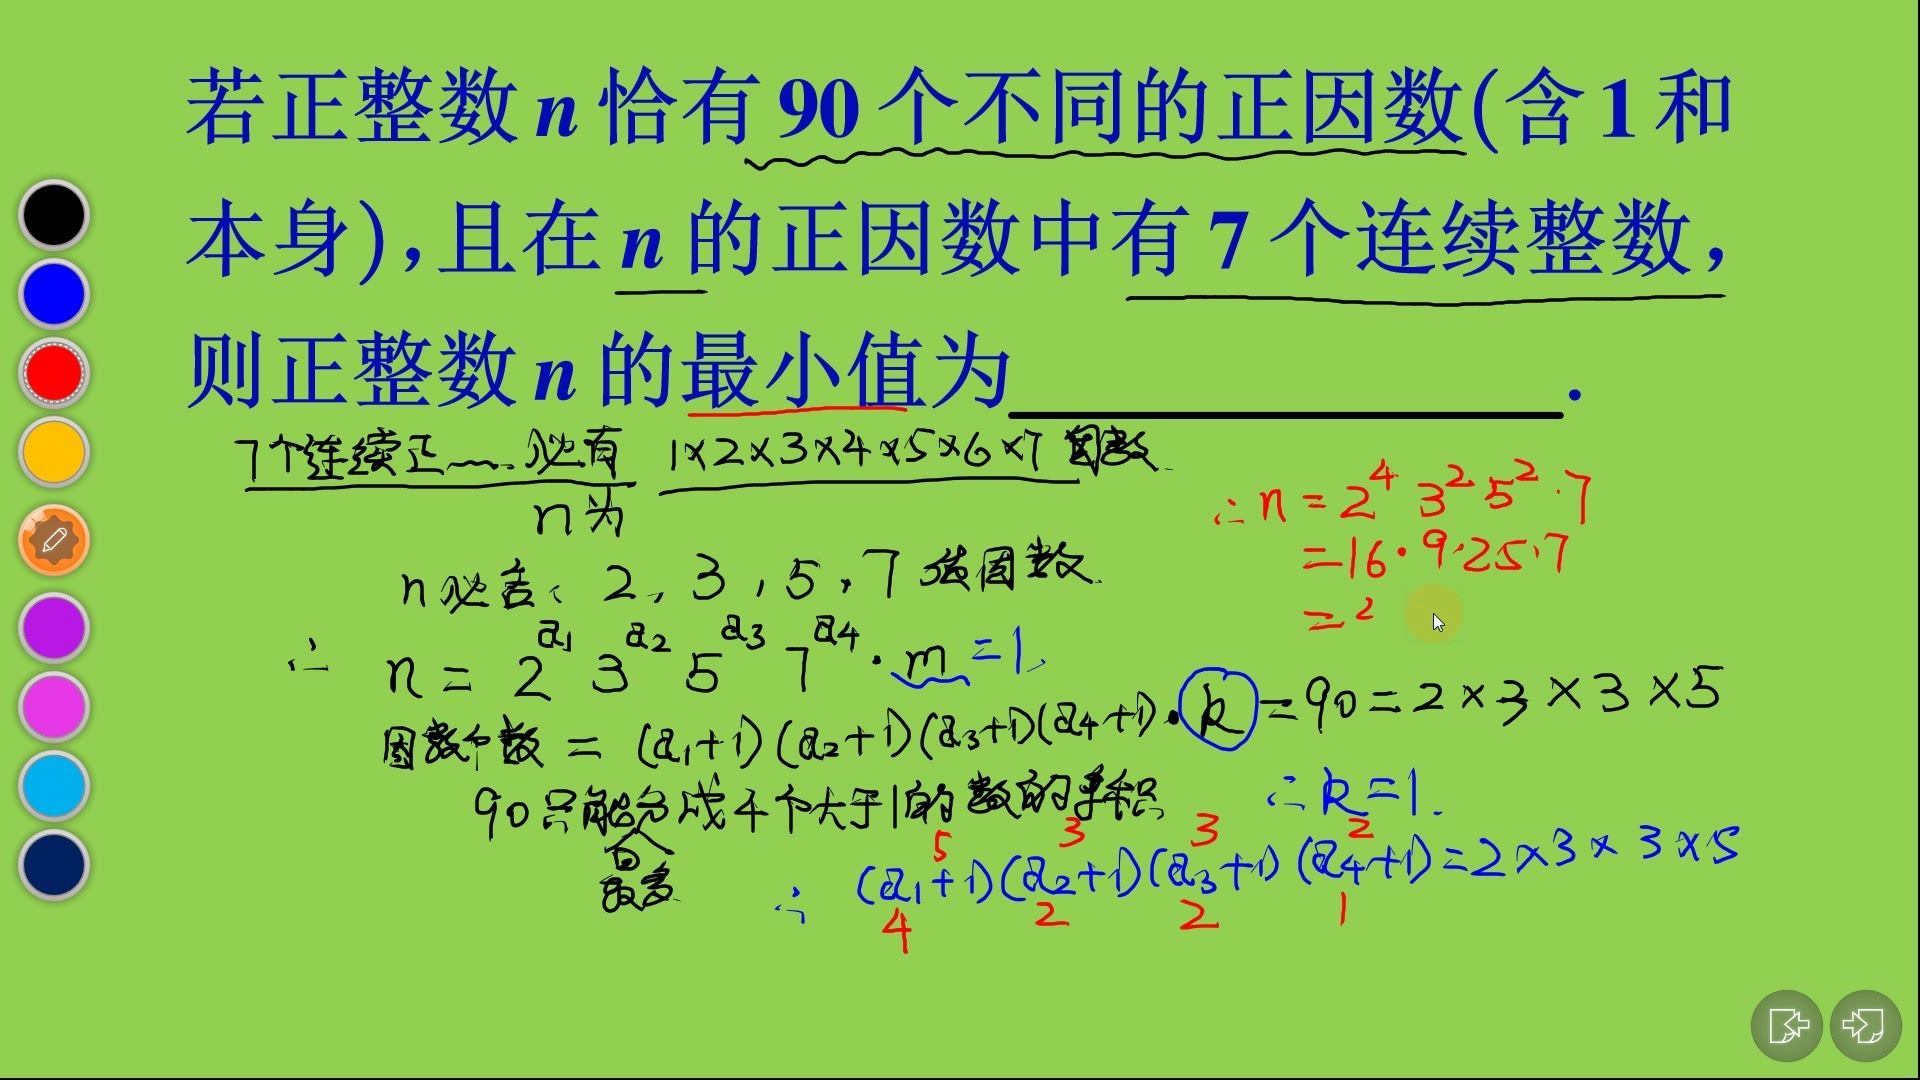 若正整数n恰有90个不同的正因数(含1和
本身),且在n的正因数中有7个连续整数,
则正整数n的最小值为____________.
7个连续正~~~ 必有 1×2×3×4×5×6×7 因数.
n为
n必含、2, 3, 5, 7 质因数.
∴ n = 2^a₁ 3^a₂ 5^a₃ 7^a₄ · m = 1,
因数个数 = (a₁+1)(a₂+1)(a₃+1)(a₄+1)·k = 90 = 2×3×3×5
90只能分成4个大于1的数的乘积
最多
∴ k = 1.
5 3 3 2
∴ (a₁+1)(a₂+1)(a₃+1)(a₄+1) = 2×3×3×5
4 2 2 1
∴ n = 2⁴ 3² 5² · 7
= 16 · 9 · 25 · 7
= 2